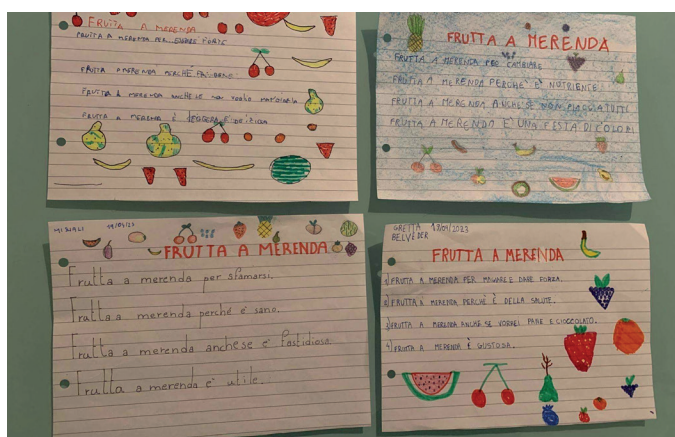 FRUITA A MERENDA
FRUITA A MERENDA PER ESSERE FORTE
FRUTTA A MERENDA PERCHÉ
FRUTTA A MERENDA ANCHE SE NON VOGLIO MANGIARLA
FRUTTA A MERENDA È LEGGERA E DELIZIOSA
FRUTTA A MERENDA
FRUTTA A MERENDA PER CAMBIARE
FRUTTA A MERENDA PERCHÈ E' NUTRIENTE
FRUTTA A MERENDA ANCHE SE NON PIACE A TUTTI
FRUTTA A MERENDA E' UNA FESTA DI COLORI
19/04/23
FRUTTA A MERENDA
Frutta a merenda per sfamarsi.
Frutta a merenda perché é sano.
Frutta a merenda anche se e' fastidiosa
Frutta a merenda e' utile.
GRETTA 19/04/2023
BELVEDER
FRUTTA A MERENDA
1) FRUTTA A MERENDA PER MAGIARE E DARE FORZA.
2) FRUTTA A MERENDA PERCHÈ È DELLA SALUTE.
3) FRUTTA A MERENDA ANCHE SE VORREI PANE E CIOCCOLATO.
4) FRUTTA A MERENDA È GUSTOSA.